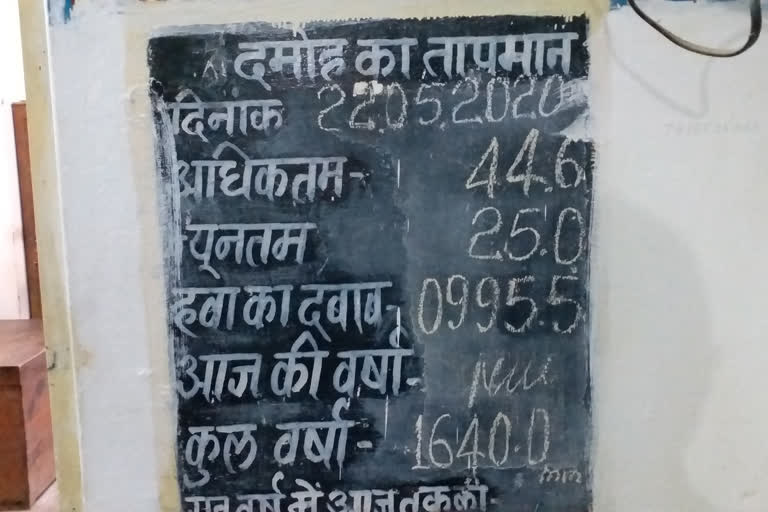 दमोह का तापमान
दिनांक 22.05.2020
अधिकतम- 44.6
न्यूनतम 25.0
हवा का दबाब- 0995.5
आज की वर्षा- Nill
कुल वर्षा- 1640.0 mm
गत वर्ष में आज तक की-